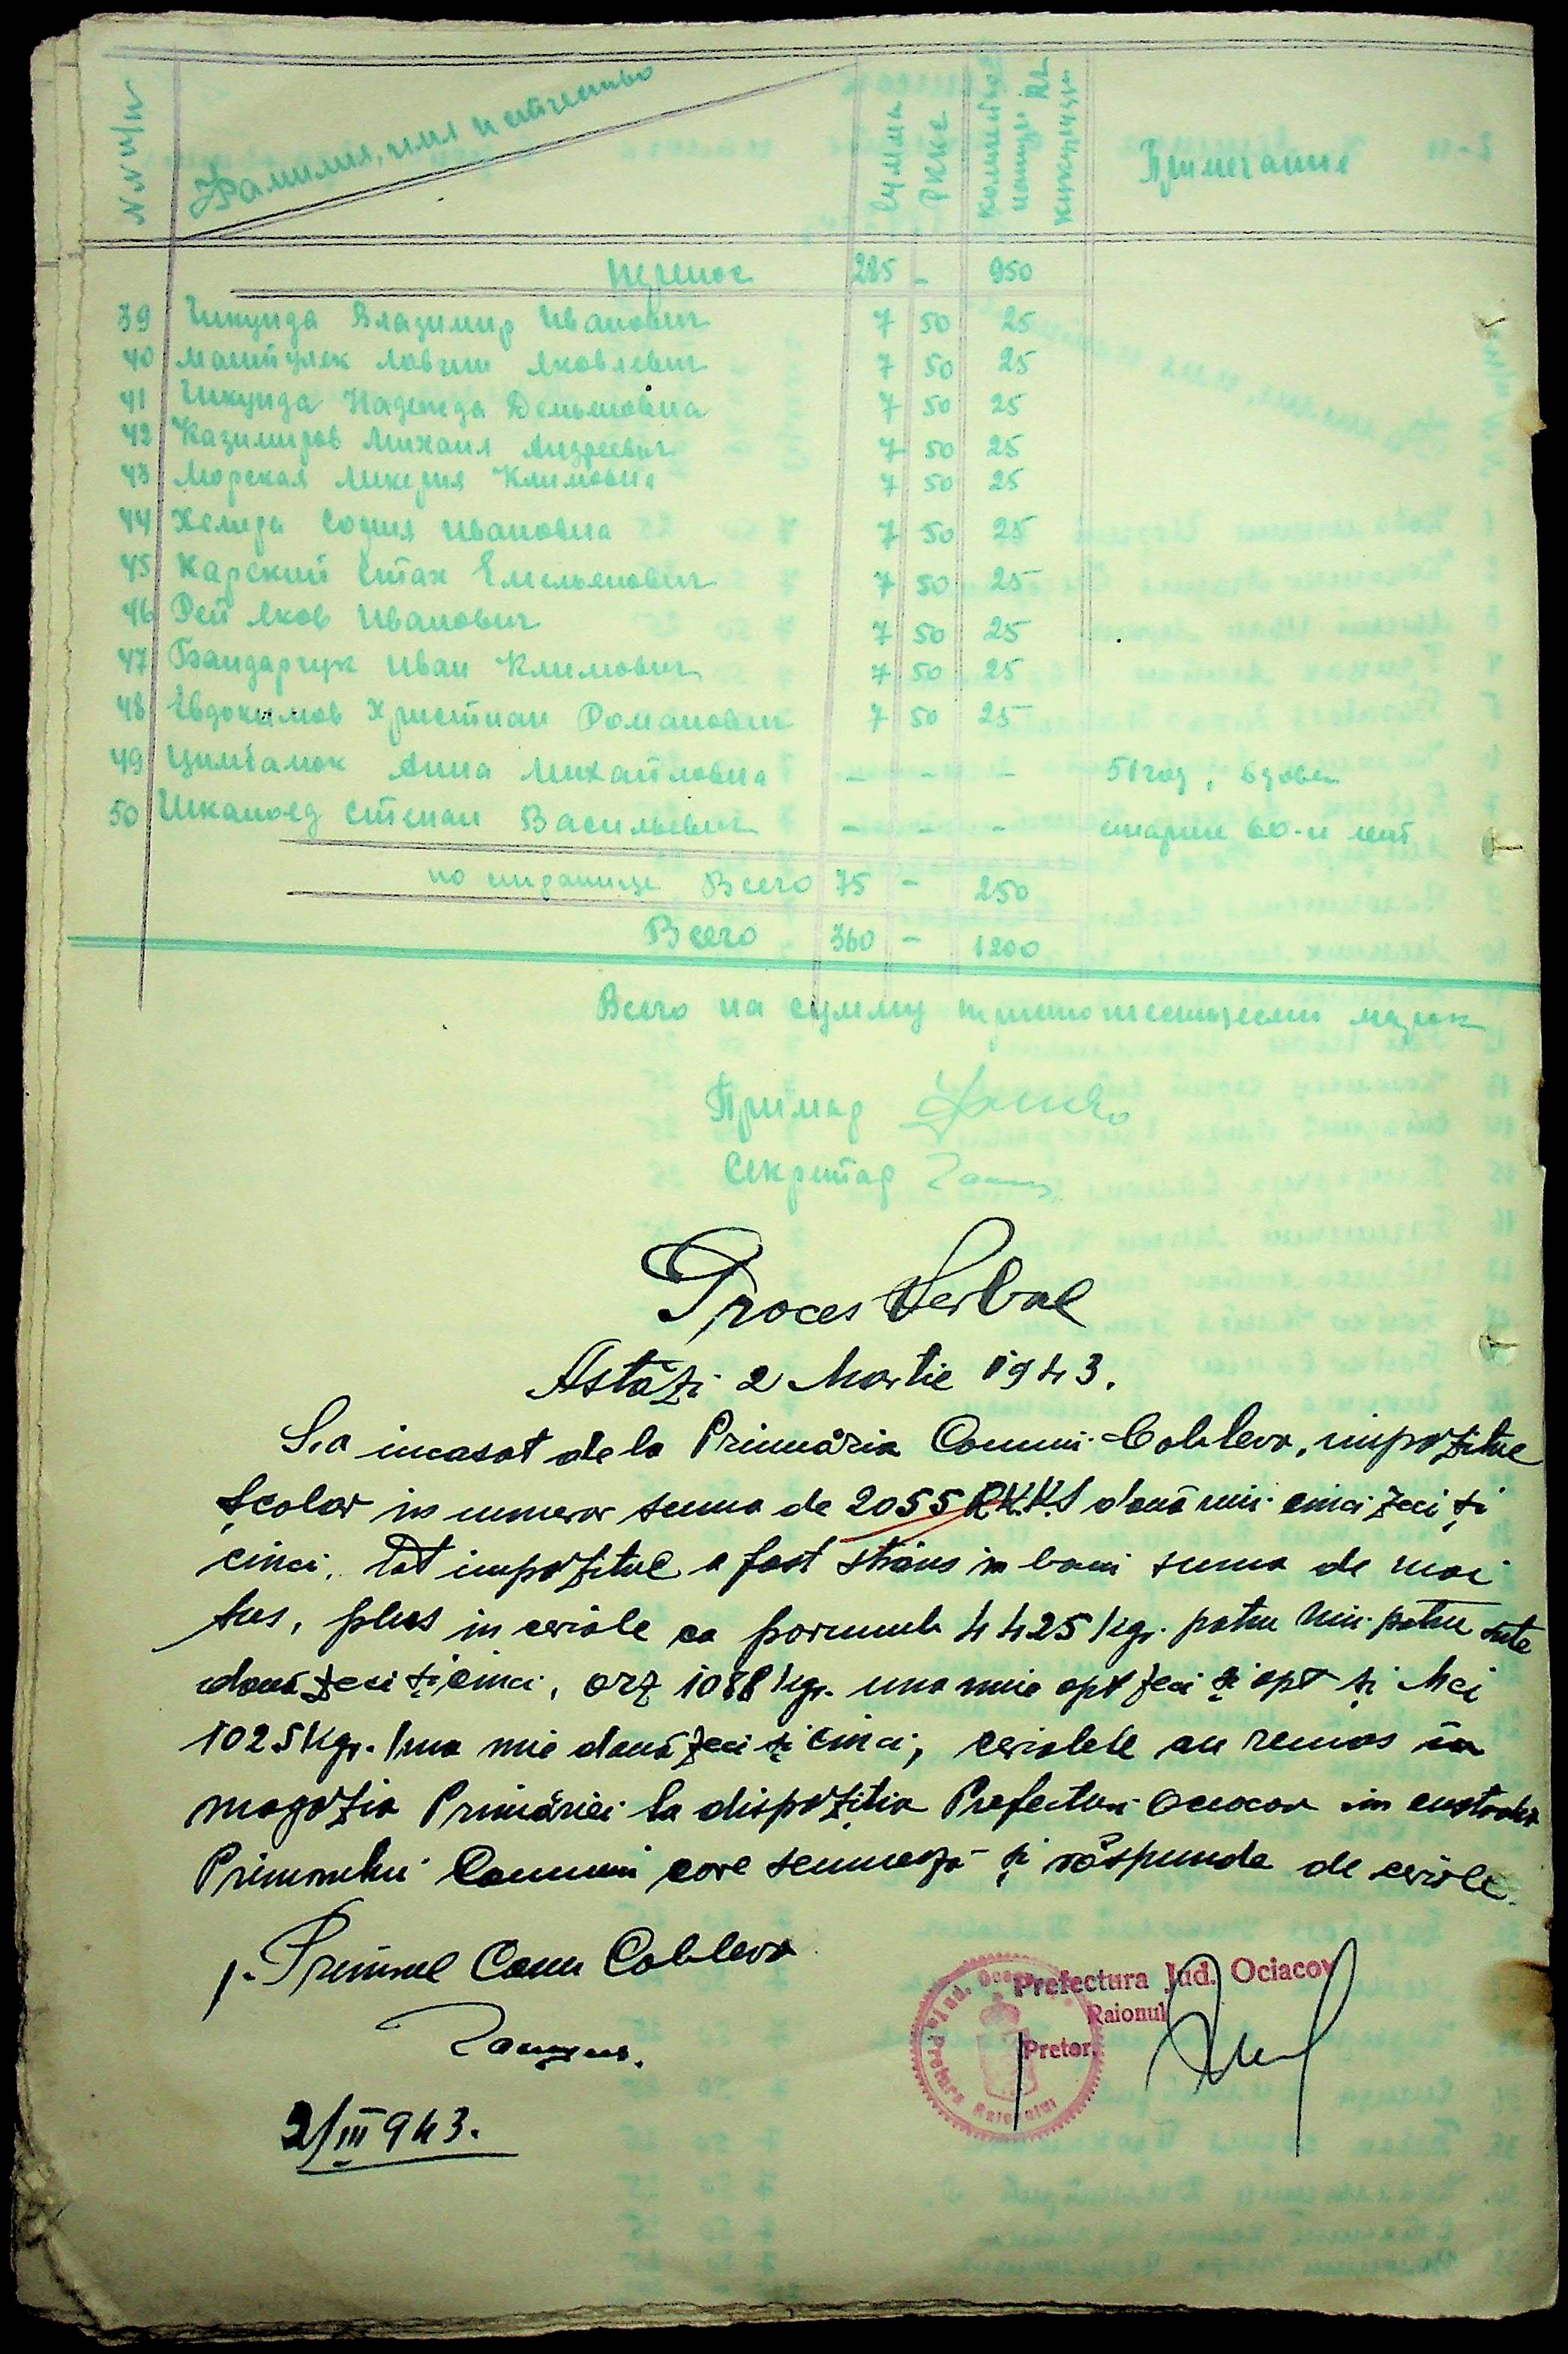 N N п/п Фамилия, имя и отчество Сумма РККС количество натуры кг кукурузы Примечание
перенос 285 - 950
39 Шкунда Владимир Иванович 7 50 25
40 Яковлевич 7 50 25
41 Шкунда Надежда Демьяновна 7 50 25
42 Казимиров Михаил Андреевич 7 50 25
43 Морская Лукерия Климовна 7 50 25
44 София Ивановна 7 50 25
45 Карский Емельянович 7 50 25
46 Рей Яков Иванович 7 50 25
47 Бандарчук Иван Климович 7 50 25
48 Евдокимов Христиан Романович 7 50 25
49 Цимбалюк Анна Михайловна - - - 51 год, вдова
50 Шкапоед Степан Васильевич - - - старше 60-и лет
по странице Всего 75 - 250
Всего 360 - 1200
Всего на сумму тристо шестьдесят марок
Примар
Секретар
Proces Verbal
Astăzi 2 Martie 1943.
S.a incasat de la Primăria Comunei Cobleva, impozitul
școlar in numerar suma de 2055 RKKS două mii cinci zeci și
cinci. Tot impozitul a fost strâns in bani suma de mai
sus, plus in ceriale ca porumb 4425 kgr. patru mii patru sute
două zeci și cinci, orz 1088 kgr. una mie opt zeci și opt și Mei
1025 kgr. una mie două zeci și cinci, cerialele au remas in
magazia Primăriei la dispoziția Prefecturi Oceacov in custodia
Primarului Comunei care semnează și răspunde de ceriale.
p. Primarul Com Cobleva
2/III 943.
Prefectura Jud. Ociacov
Raionul
Pretor,